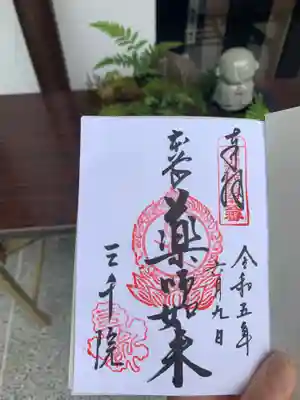 奉拝
令和五年
月九日
薬師如来
三千院